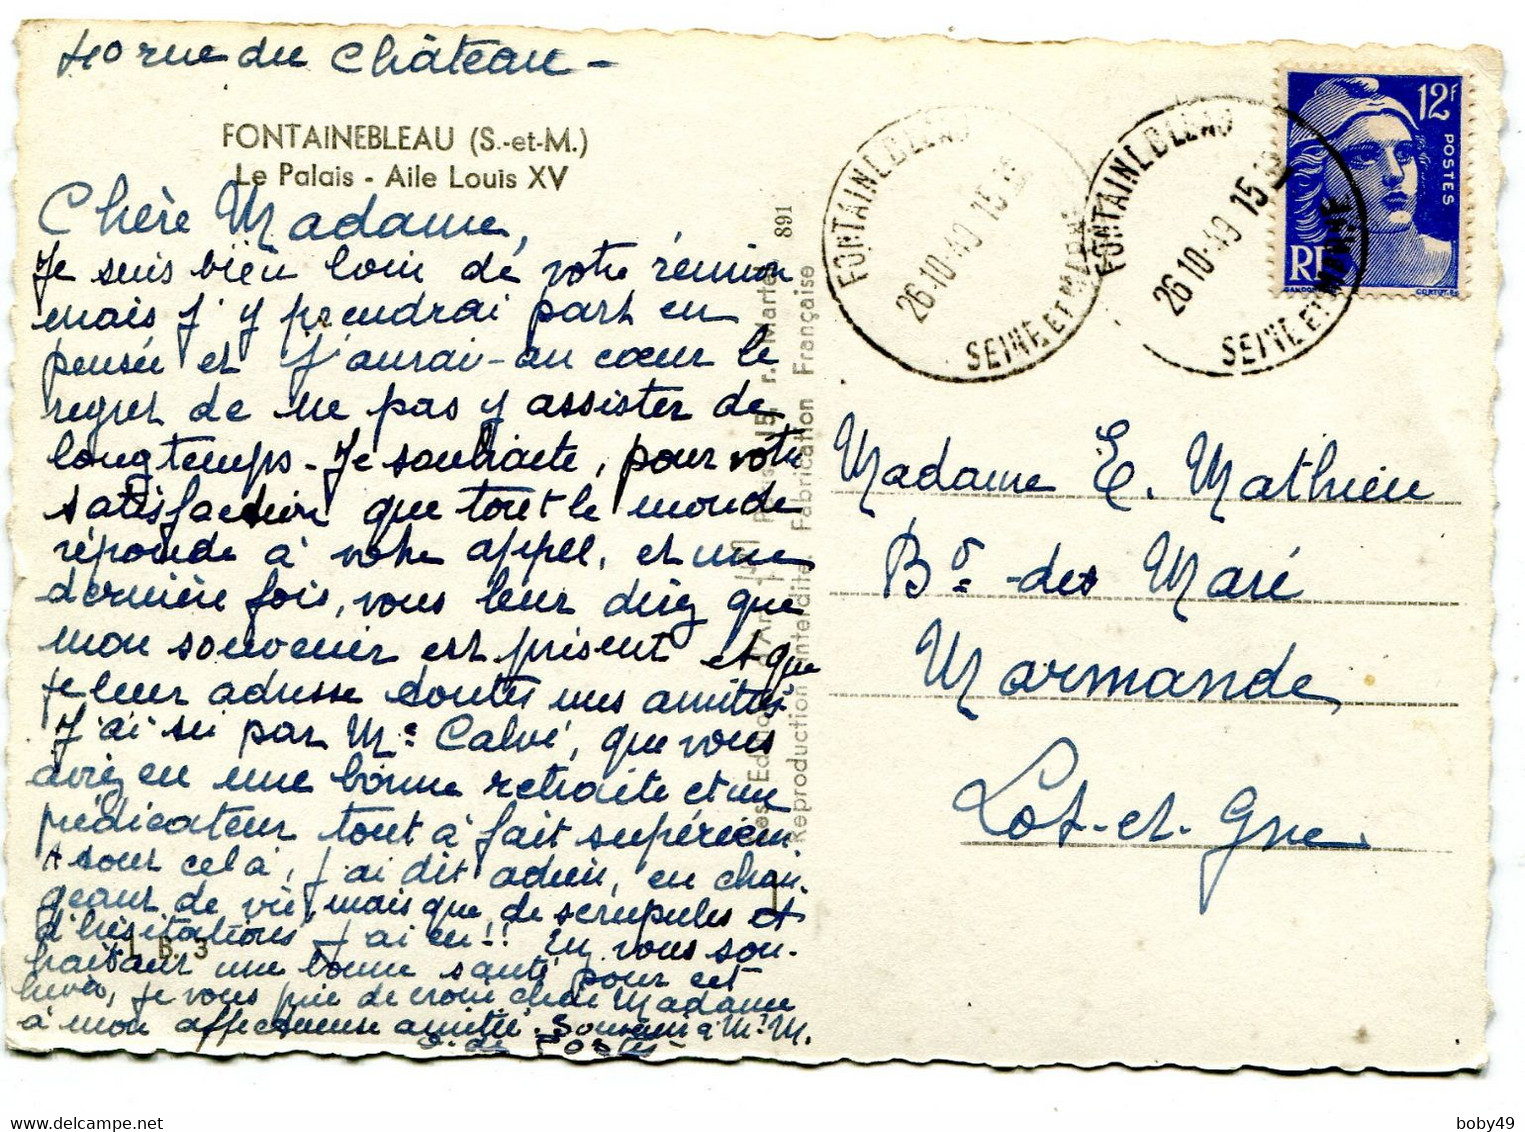 40 rue du Château -
FONTAINEBLEAU (S.-et-M.)
Le Palais - Aile Louis XV
Chère Madame,
Je suis bien loin de votre réunion
mais j'y prendrai part en
pensée et j'aurai - au cœur le
regret de ne pas y assister de
longtemps - Je souhaite, pour votre
satisfaction que tout le monde
réponde à votre appel, et une
dernière fois, vous leur direz que
mon souvenir est présent et que
je leur adresse toutes mes amitiés
J'ai su par Me Calvé, que vous
aviez eu une bonne retraite et un
prédicateur tout à fait supérieur
A tout cela, j'ai dit adieu, en chan-
geant de vie, mais que de scrupules et
d'hésitations j'ai eu!! En vous sou-
haitant une bonne santé pour cet
hiver, je vous prie de croire chère Madame
à mon affectueuse amitié. Souvenir à Mr M.
L B. 3
891
r. Martel
Reproduction interdite. Fabrication Française
FONTAINEBLEAU
26-10-49 15
SEINE ET MARNE
FONTAINEBLEAU
26 10-49 15
SEINE ET MARNE
12F
POSTES
RF
GANDON
CORTOT.SC
Madame E. Mathieu
Bd des Maré
Marmande
Lot-et-Gne
boby49